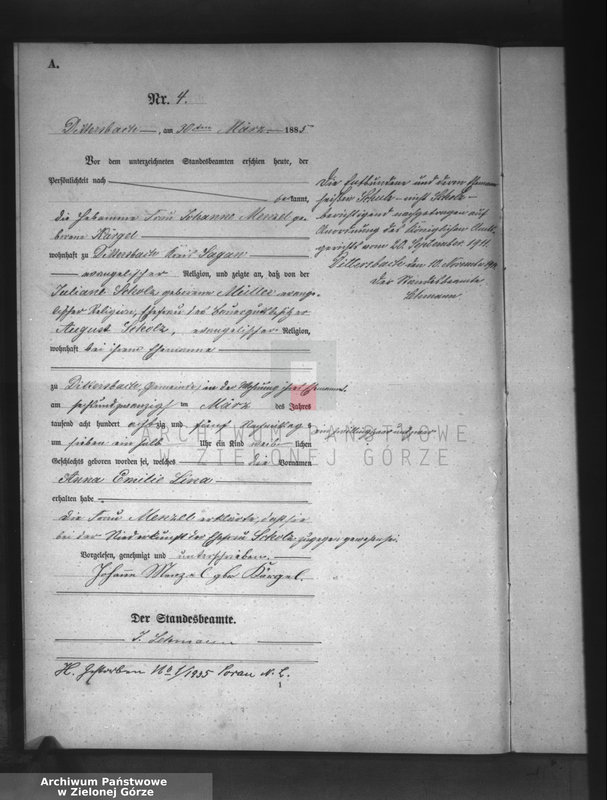 A.
Nr. 4.
Dittersbach, am 30ten März 1885
Vor dem unterzeichneten Standesbeamten erschien heute, der
Persönlichkeit nach
bekannt,
die Hebamme Frau Johanne Menzel ge-
borene Kärgel
wohnhaft zu Dittersbach Kreis Sagan
evangelischer Religion, und zeigte an, daß von der
Juliane Scholz geborene Müller evange-
lischer Religion, Ehefrau des Bauergutsbesitzer
August Scholz, evangelischer Religion,
wohnhaft bei ihrem Ehemanne
zu Dittersbach, in der Wohnung ihres Ehemannes
am sechsundzwanzigst ten März des Jahres
tausend acht hundert achtzig und fünf Nachmittags
um sieben ein halb Uhr ein Kind weiblichen
Geschlechts geboren worden sei, welches die Vornamen
Anna Emilie Lina
erhalten habe
Die Frau Menzel erklärte, daß sie
bei der Niederkunft der Ehefrau Scholz zugegen gewesen sei.
Vorgelesen, genehmigt und unterschrieben.
Johanne Menzel gbr Kärgel.
Der Standesbeamte.
J. Lehmann
H. Gestorben No 1/1935 Sorau N. L.
1
Die Entbundene und deren Ehemann
heißen Schulz – nicht Scholz –
berichtigend nachgetragen auf
Anordnung des Königlichen Amts-
gerichts vom 20. September 1911.
Dittersbach den 10. November 1911
Der Standesbeamte
Lehmann
ARCHIWUM PAŃSTWOWE
W ZIELONEJ GÓRZE
Archiwum Państwowe
w Zielonej Górze